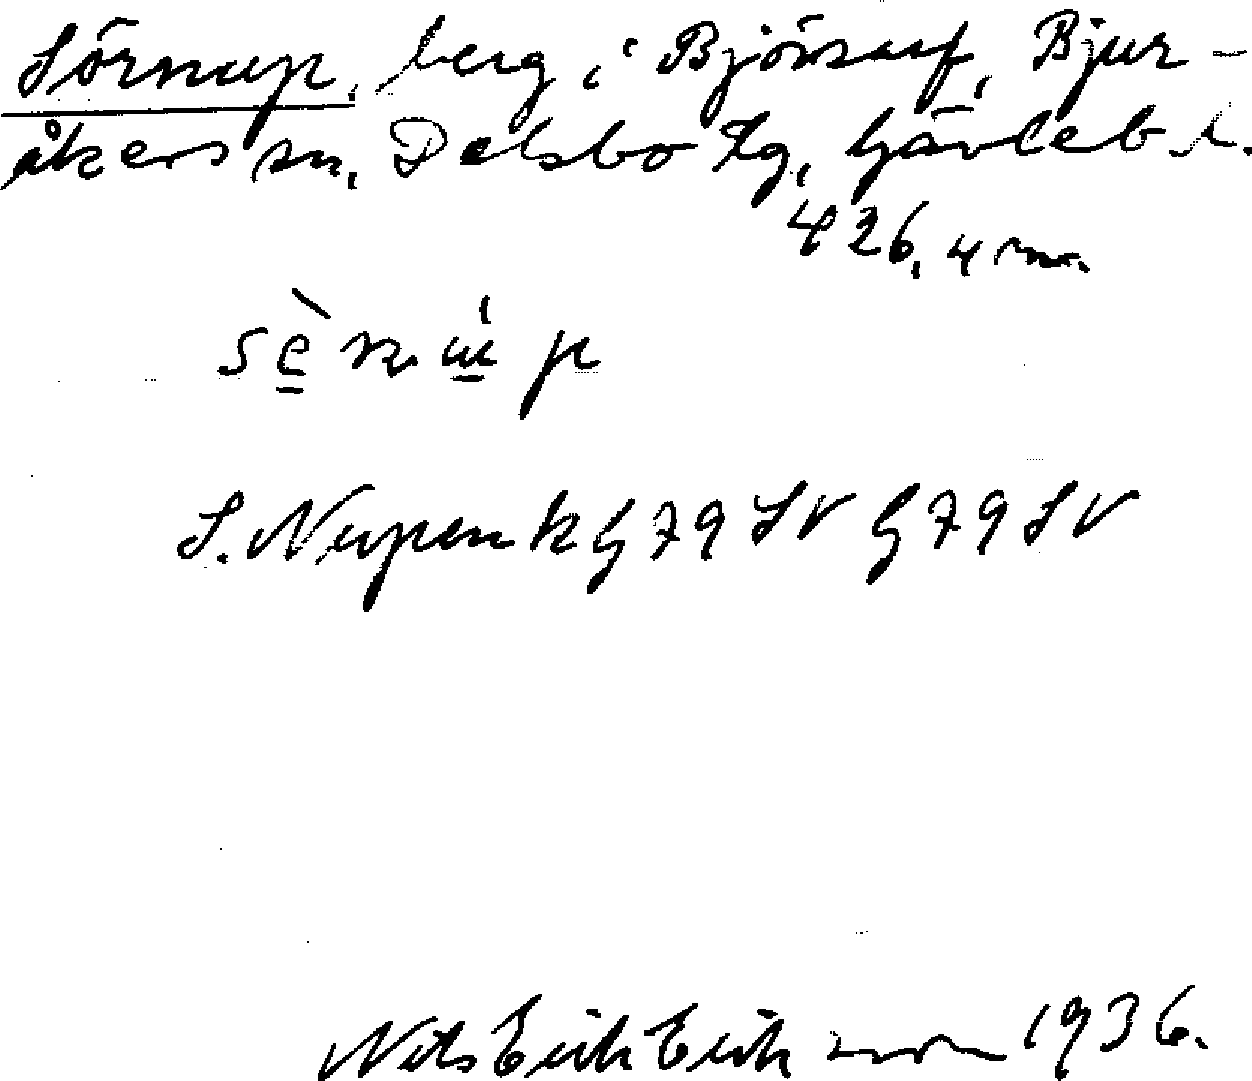 Sörnup, berg i Björsarf, Bjur-
åkers sn, Delsbo tg, Gävleb. l.
426,4 m.
S. Nupen k G 79 SV G 79 SV
Nils Erik Erikson 1936.